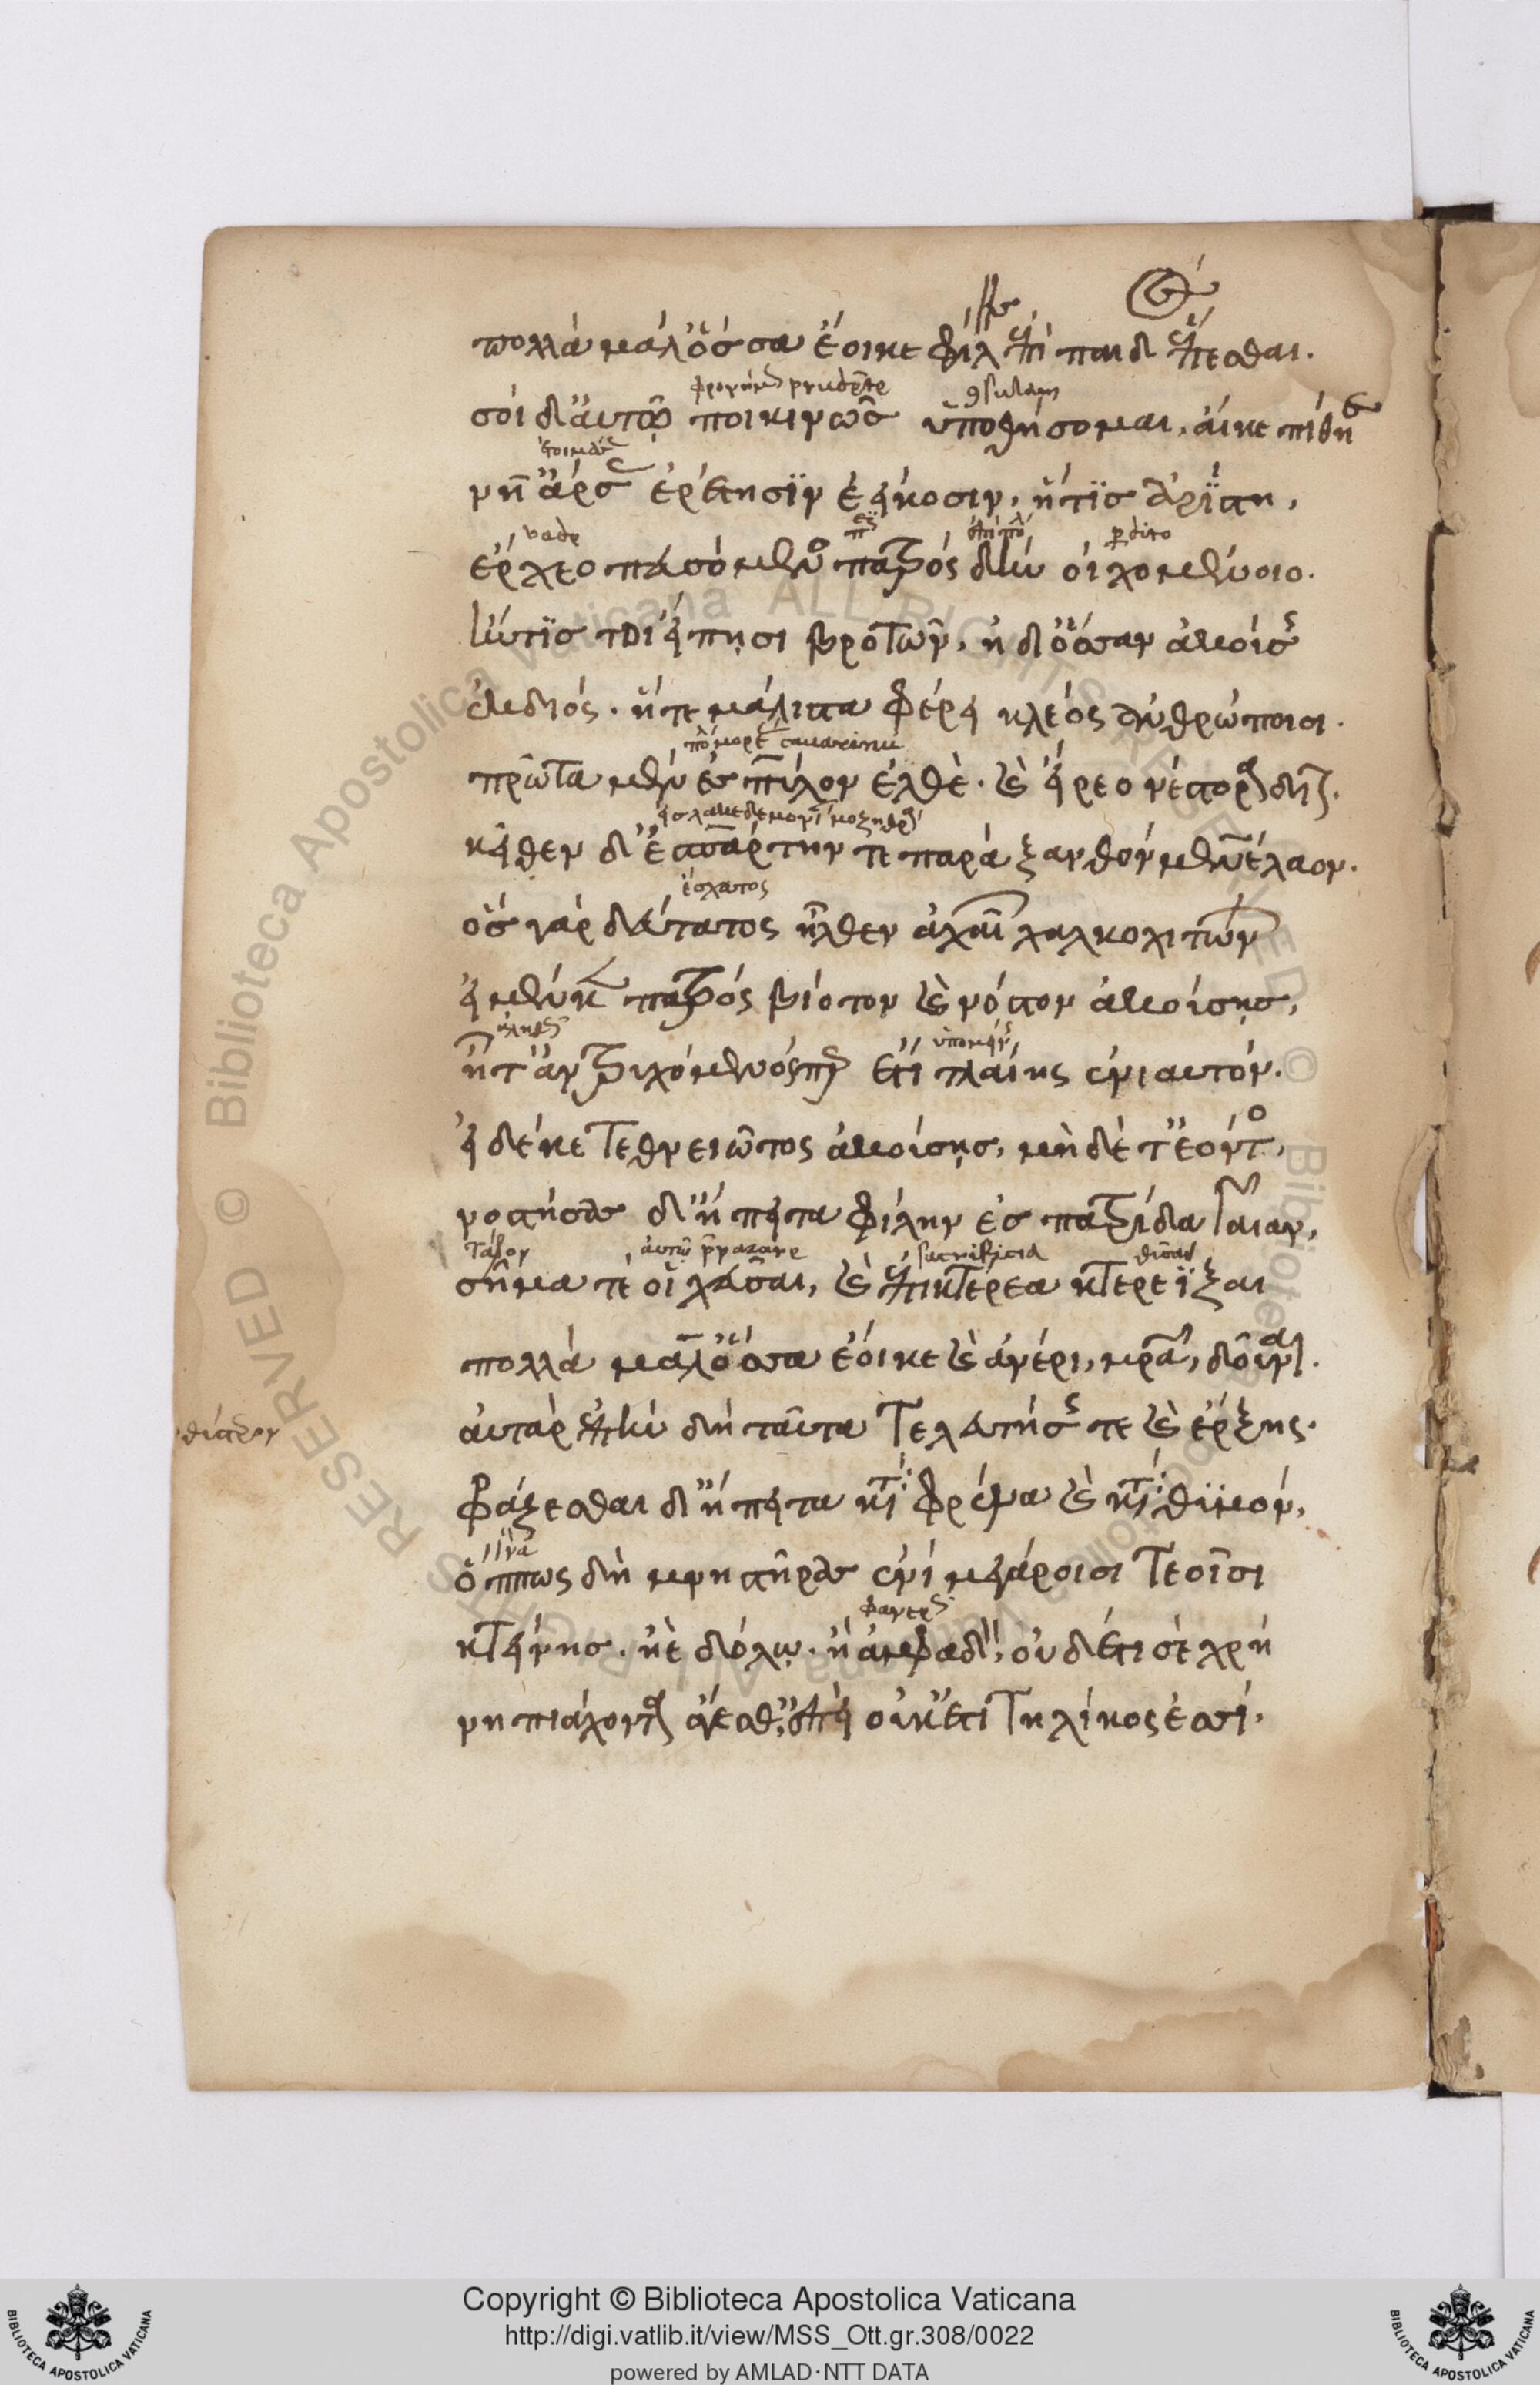 πολλὰ μάλ' ὅσσα ἔοικε φίλης ἐπὶ παιδὶ ἕπεσθαι.
φρονίμως prudēte
σοὶ δ' αὐτῷ ποικινῶς ὑποθήσομαι, αἴκε πίθηαι
νῆ' ἄρσας ἐρέτῃσιν ἐείκοσιν, ἥτις ἀρίστη,
vade
ἔρχεο πευσόμενος πατρὸς δὴν οἰχομένοιο.
ἤν τίς τοι εἴπῃσι βροτῶν, ἢ ὄσσαν ἀκούσῃς
ἐκ διός. ἥτε μάλιστα φέρει κλέος ἀνθρώποισι.
πρῶτα μὲν ἐς πύλον ἐλθὲ. καὶ εἴρεο νέστορα δῖον.
κεῖθεν δ' ἐς σπάρτην τε παρὰ ξανθὸν μενέλαον.
ἔσχατος
ὃς γὰρ δεύτατος ἦλθεν ἀχαιῶν χαλκοχιτώνων
εἰ μέν κεν πατρὸς βίοτον καὶ νόστον ἀκούσῃς,
ἦ τ' ἂν τρυχόμενός περ ἔτι τλαίης ἐνιαυτόν.
εἰ δέ κε τεθνειῶτος ἀκούσῃς, μὴ δὲ τ' ἐόντος,
νοστήσας δ' ἤπειτα φίλην ἐς πατρίδα γαῖαν,
τάφον αὐτῷ sacrificia
σῆμα τέ οἱ χεῦσαι, καὶ ἐπικτέρεα κτερεΐξαι
πολλὰ μάλ' ὅσσα ἔοικε καὶ ἀνέρι, μητέρα, δοῦναι.
αὐτὰρ ἐπὴν δὴ ταῦτα τελευτήσῃς τε καὶ ἔρξῃς.
φράζεσθαι δ' ἤπειτα κατὰ φρένα καὶ κατὰ θυμὸν,
ἵνα
ὅππως δὴ μνηστῆρας ἐνὶ μεγάροισι τεοῖσι
κτείνῃς. ἠὲ δόλῳ. ἢ ἀμφαδὸν, οὐδέ τι σὲ χρὴ
νηπιάχοντας ἀγέσθ', ἐπεὶ οὐκ ἔτι τηλίκος ἐσσί.
Copyright © Biblioteca Apostolica Vaticana
http://digi.vatlib.it/view/MSS_Ott.gr.308/0022
powered by AMLAD·NTT DATA
BIBLIOTECA APOSTOLICA VATICANA
BIBLIOTECA APOSTOLICA VATICANA